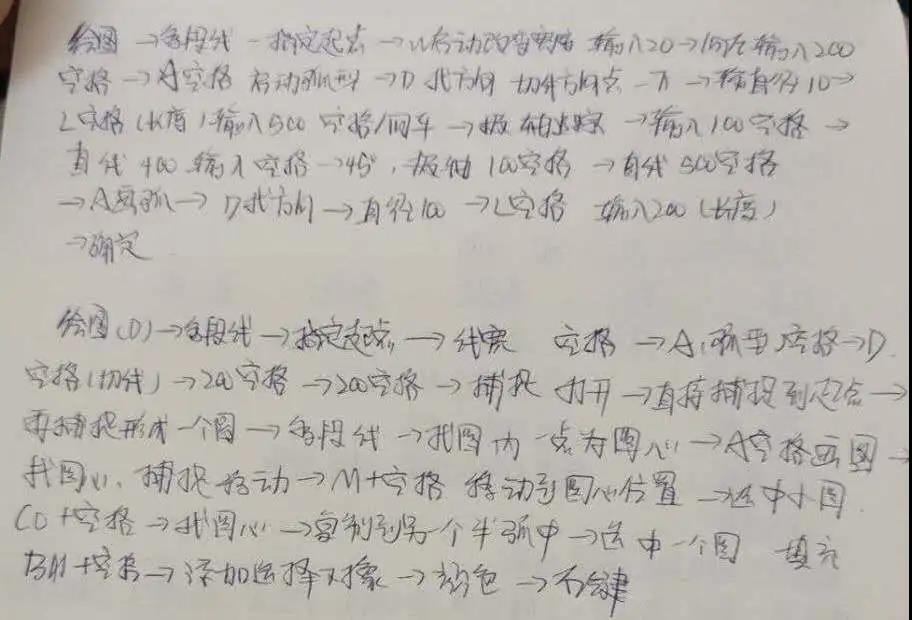 绘图→多段线→指定起点→W启动改变宽度 输入20→ 输入200
空格→A空格 启动弧型→D 找方向 切线方向点一下→输直径10→
L空格(长度)输入500 空格/回车→极轴追踪→输入100空格→
直线400 输入空格→45°,极轴100空格→直线500空格
→A圆弧→D找方向→直径100→L空格 输入200(长度)
→确定
绘图(D)→多段线→指定起点→线宽 空格→A(弧型)空格→D
空格(切线)→200空格→200空格→捕捉 打开→直接捕捉到起点→
再捕捉形成一个圆→多段线→找圆内一点为圆心→A空格画圆→
找圆心,捕捉移动→M+空格 移动到圆心位置→选中小圆
CO+空格→找圆心→复制到另一个半弧中→选中一个圆 填充
+空格→添加选择对象→颜色→右键